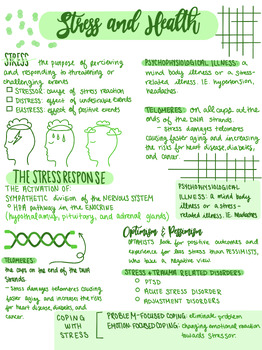 Stress and Health
STRESS: the purpose of perceiving
and responding to threatening or
challenging events
STRESSOR: cause of stress reaction
DISTRESS: effect of undesirable events
EUSTRESS: effect of positive events
PSYCHOPHYSIOLOGICAL ILLNESS: a
mind body illness or a stress-
related illness. IE hypertension,
headaches.
TELOMERES: on all caps at the
ends of the DNA strands.
- stress damages telomeres
causing faster aging and increasing
the risks for heart disease, diabetes,
and cancer.
THE STRESS RESPONSE
THE ACTIVATION OF:
SYMPATHETIC division of the NERVOUS SYSTEM
HPA pathway in the ENDOCRINE
(hypothalamus, pituitary, and adrenal glands)
PSYCHOPHYSIOLOGICAL
ILLNESS: a mind body
illness or a stress-
related illness. IE headaches
Optimism & Pessimism
OPTIMISTS look for positive outcomes and
experience far less stress than PESSIMISTS,
who have a negative view.
TELOMERES
the caps on the end of the DNA
strands.
- stress damages telomeres causing
faster aging, and increases the risks
for heart disease, diabetes, and
cancer.
STRESS & TRAUMA RELATED DISORDERS
PTSD
ACUTE STRESS DISORDER
ADJUSTMENT DISORDERS
COPING
WITH
STRESS
PROBLEM-FOCUSED COPING: eliminate problem
EMOTION FOCUSED COPING: changing emotional reaction
towards stressor